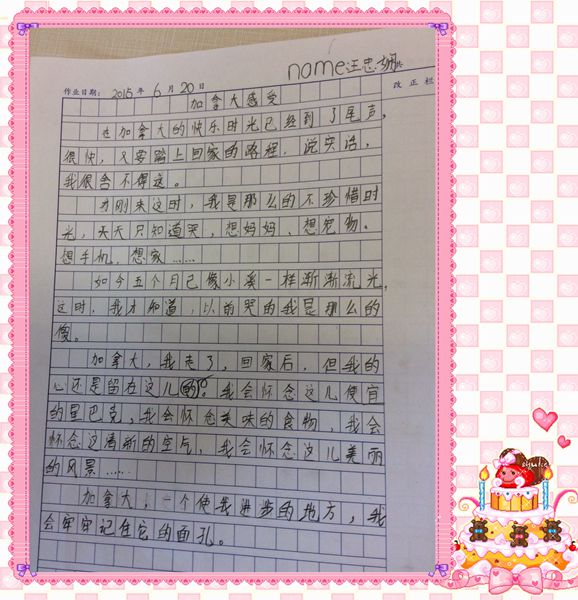 name汪忠娴
作业日期： 2015 年 6 月 20 日
改 正 栏
加拿大感受
在加拿大的快乐时光已经到了尾声，
很快，又要踏上回家的路程，说实话，
我很舍不得这。
才刚来这时，我是那么的不珍惜时
光，天天只知道哭，想妈妈、想宠物。
想手机，想家……
如今五个月已像小溪一样渐渐流光，
这时，我才知道，以前哭的我是那么的
傻。
加拿大，我走了，回家后，但我的
心还是留在这儿的。我会怀念这儿便宜
的星巴克，我会怀念美味的食物，我会
怀念这清新的空气，我会怀念这儿美丽
的风景……
加拿大，一个使我进步的地方，我
会牢牢记住它的面孔。